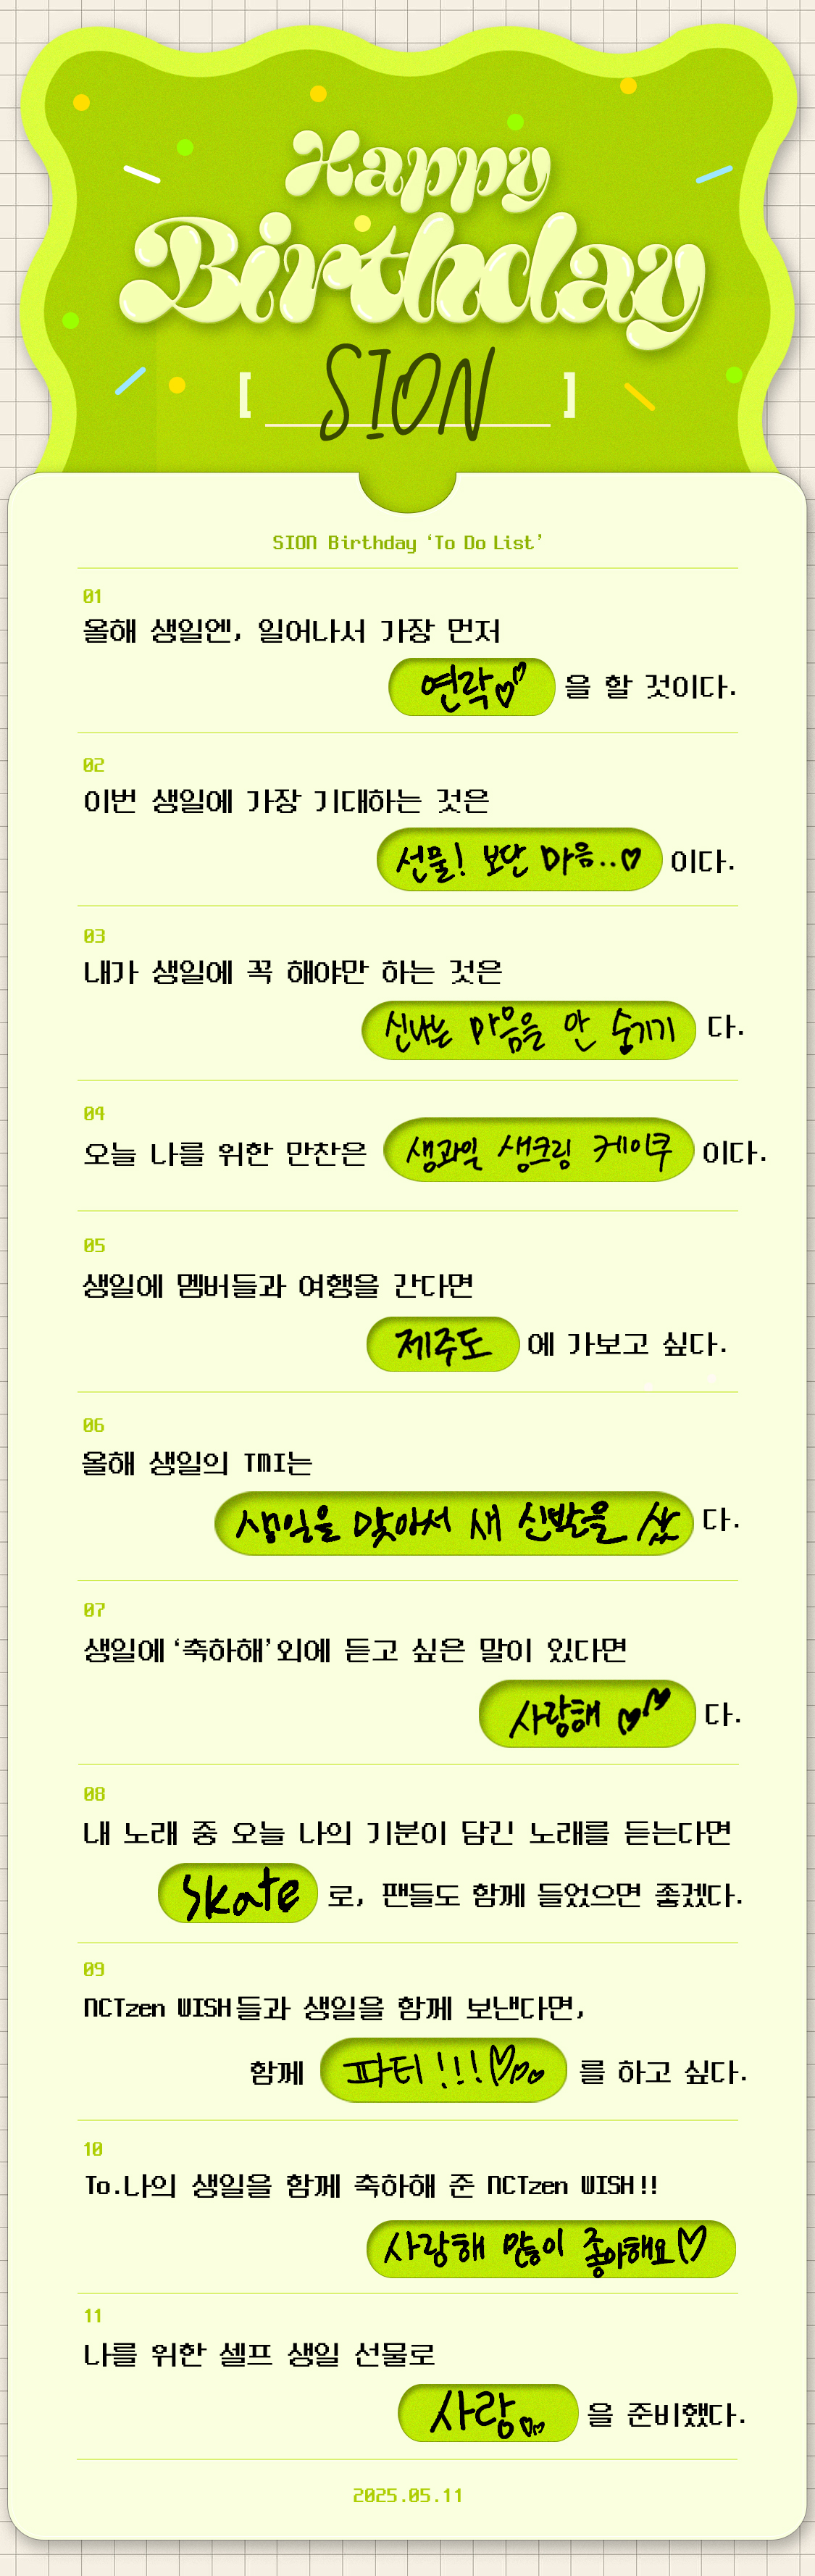 Happy
Birthday
[ SION ]
SION Birthday ‘To Do List’
01
올해 생일엔, 일어나서 가장 먼저
연락♡♡ 을 할 것이다.
02
이번 생일에 가장 기대하는 것은
선물! 보단 마음..♡ 이다.
03
내가 생일에 꼭 해야만 하는 것은
신나는 마음을 안 숨기기 다.
04
오늘 나를 위한 만찬은 생과일 생크림 케이쿠 이다.
05
생일에 멤버들과 여행을 간다면
제주도 에 가보고 싶다.
06
올해 생일의 TMI는
생일을 맞아서 새 신발을 샀 다.
07
생일에 ‘축하해’외에 듣고 싶은 말이 있다면
사랑해 ♡♡ 다.
08
내 노래 중 오늘 나의 기분이 담긴 노래를 듣는다면
Skate 로, 팬들도 함께 들었으면 좋겠다.
09
NCTzen WISH들과 생일을 함께 보낸다면,
함께 파티!!!♡♡♡ 를 하고 싶다.
10
To.나의 생일을 함께 축하해 준 NCTzen WISH!!
사랑해 많이 좋아해요♡
11
나를 위한 셀프 생일 선물로
사랑♡♡ 을 준비했다.
2025.05.11